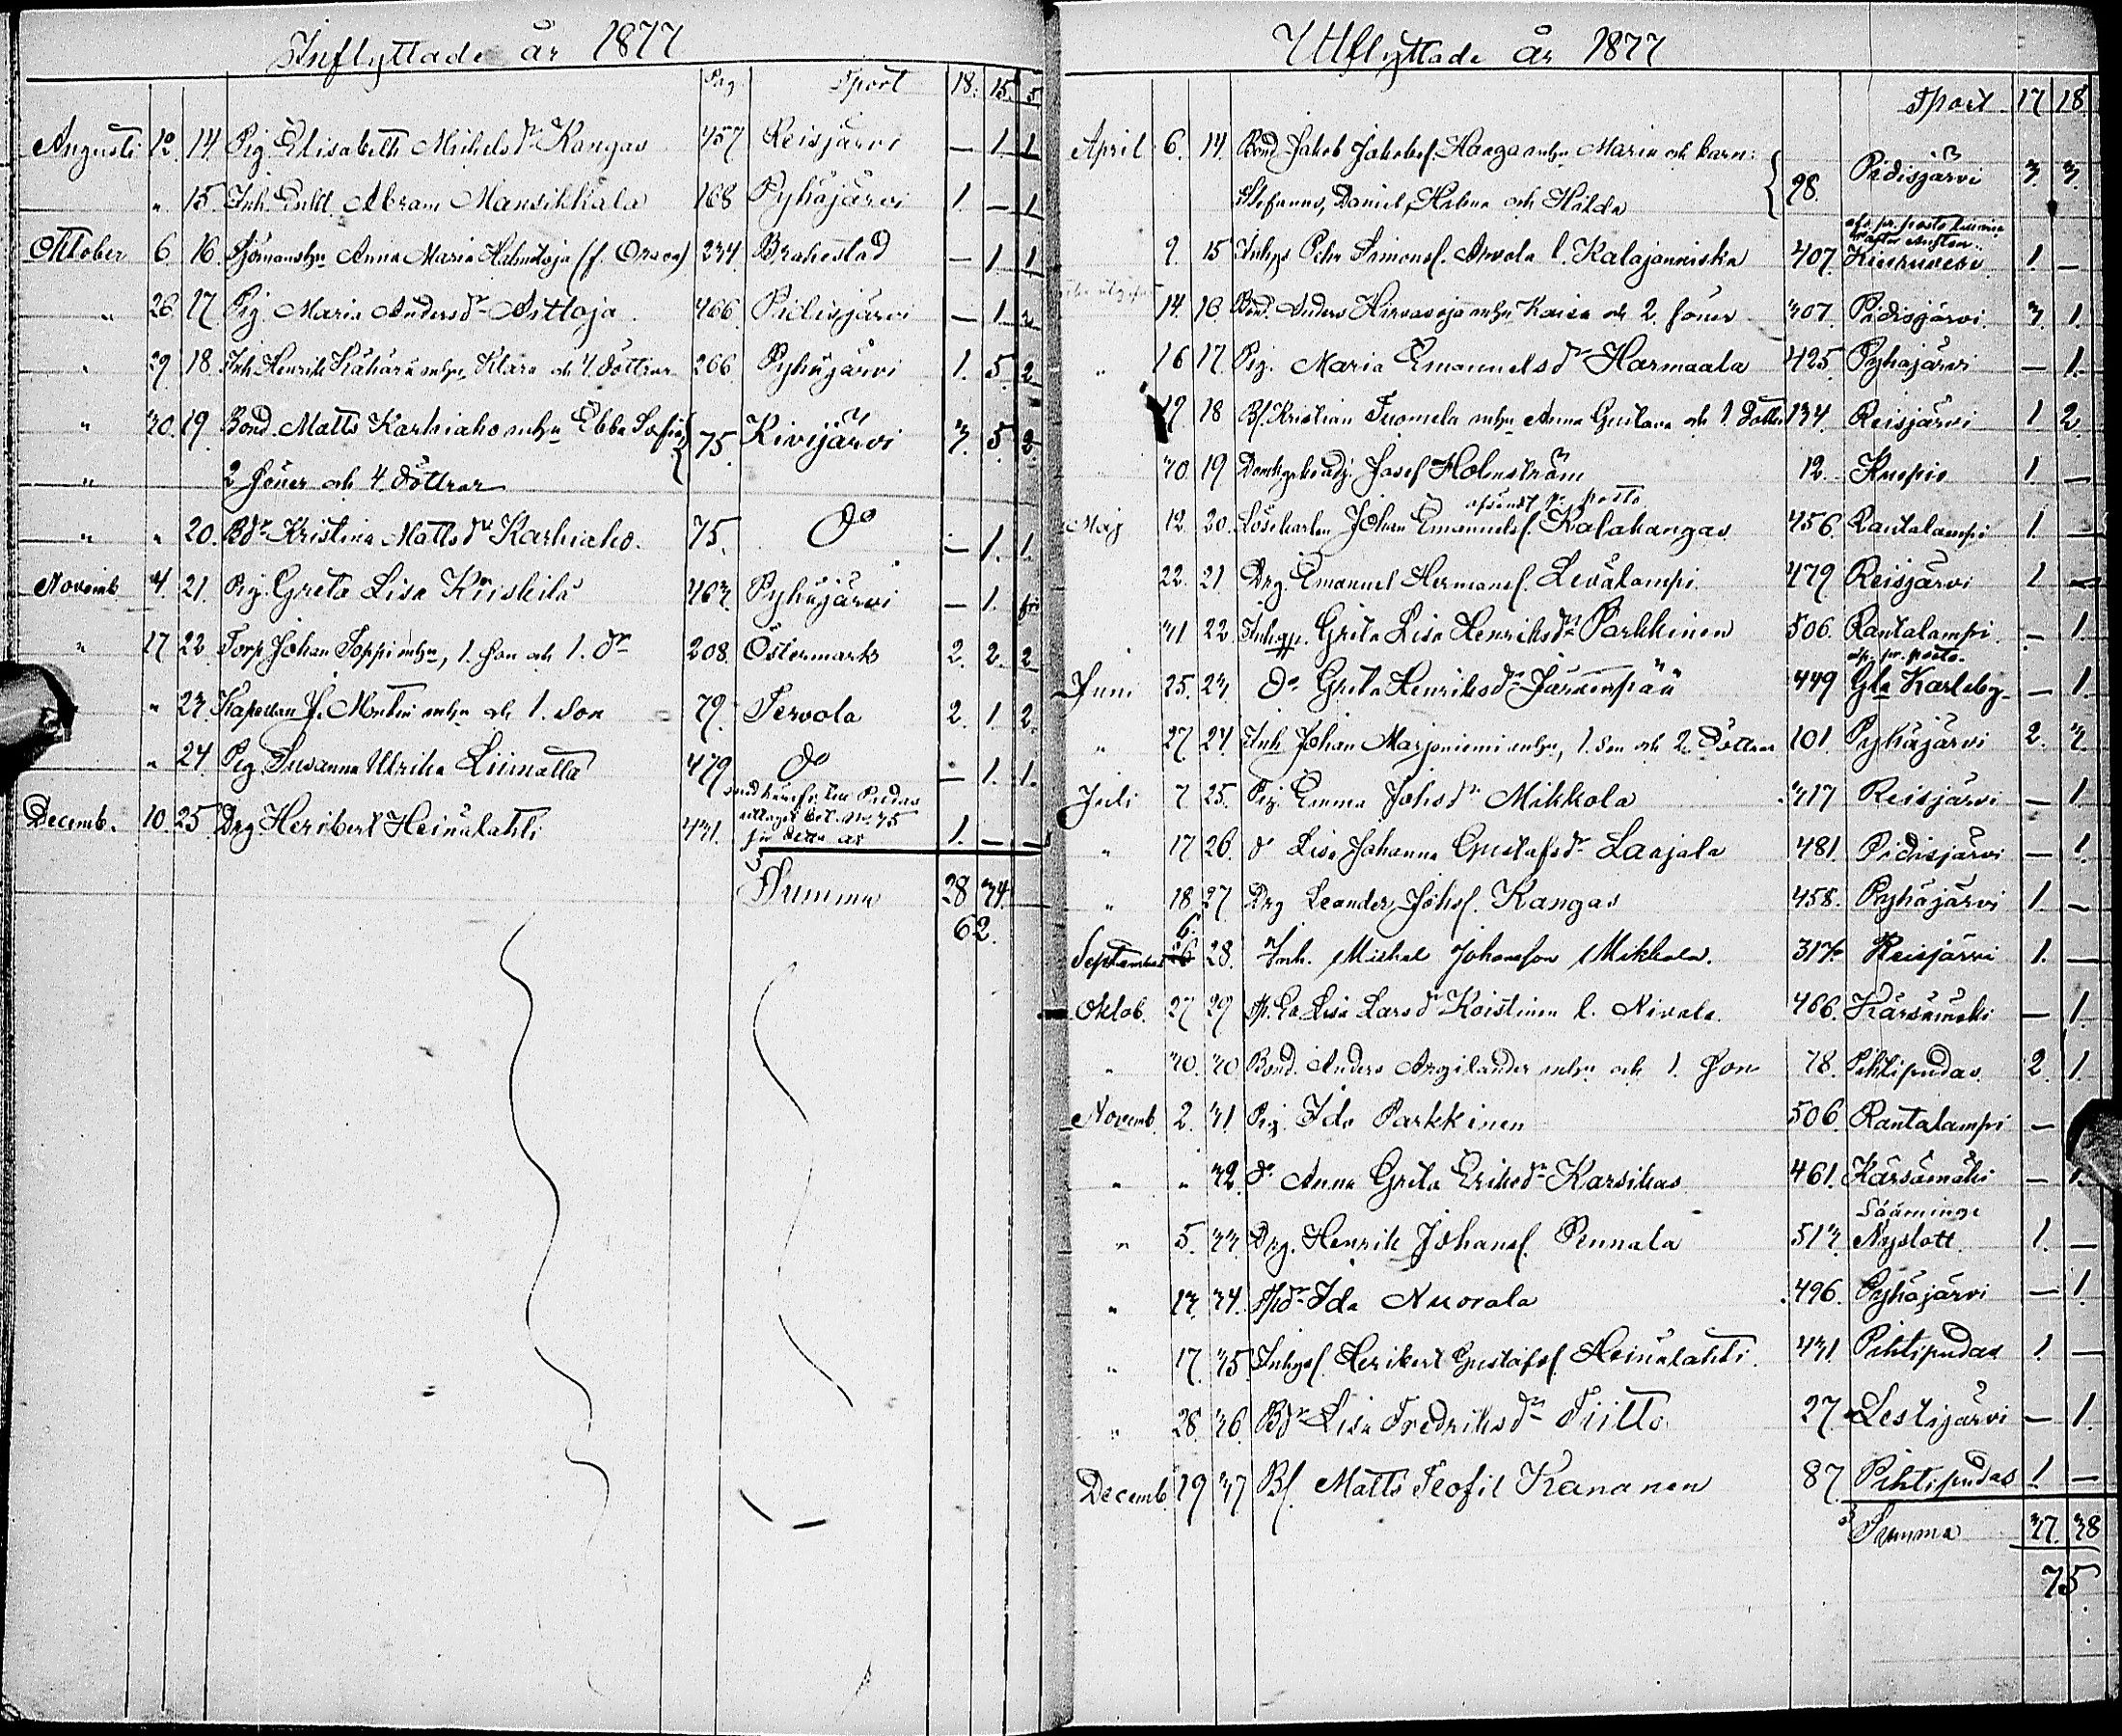 Inflyttade år 1877
Pag Sport 18. 15. 5
Augusti 12. 14. Pig. Elisabeth Michelsdr Kangas 457 Reisjärvi — 1 1
" 15. Inh. Enkl. Abram Mansikkala 168 Pyhäjärvi 1. — 1
Oktober 6 16. Anna Maria 234 Brahestad — 1 1
" 26 17. Pig. Maria Andersdr Aittoja 466. Pidisjärvi — 1
" 29 18. Inh. Henrik Kähärä mhu Klara och 4 döttrar 266 Pyhäjärvi 1. 5. 2
" 30. 19. Bond. Matts Karhiaho mhu Ebba Sofia 75. Kivijärvi 3. 5 2.
" 2 söner och 4 döttrar
" " 20. Bdr Kristina Mattsdr Karhiaho. 75. do — 1. 1.
Novemb. 4 21. Pig. Greta Lisa Kriskilä 463. Pyhäjärvi — 1.
" 17 22. Torp. Johan Soppi mhu, 1. son och 1. dr 208. Östermark 2. 2. 2
" 23. Kapellan J. mhu och 1. son 79. Tervola 2. 1 2.
" 24. Pig. Susanna Ulrika Liimatta 479 do — 1. 1.
Decemb. 10. 25. Drg Heribert Heinälahti 431. Pudas
No. 35
för detta år 1. — —
Summa 28 34.
62.
Utflyttade år 1877
Sport 17 18
April 6. 14. Bond Jakob Jakobsf. Haaga mhu Maria och barn: Pidisjärvi 3. 3.
Stefanus, Daniel, Helena och Hilda 98.
9. 15 Inhys Petter Simonsf. Arvola l. Kalajanniska 407. 1. —
14. 16. Bond. Anders Hirvasoja mhu Kaisa och 2. söner 307. Pidisjärvi. 3. 1.
" 16 17. Pig. Maria Emanuelsdr Harmaala 425. Pyhäjärvi — 1.
19. 18 Bf. Kristian Tuomela mhu Anna Gustava och 1 dotter 134. Reisjärvi 1 2.
30. 19 Josef Holmström 12. Kuopio 1 —
afsändt pr. posto
Maj 12. 20. Lösekarlen Johan Emanuelsf. Kalakangas 456. Rantalampi 1. —
22. 21 Drg. Emanuel Hermansf. Levälampi 479 Reisjärvi 1 —
31 22. Greta Lisa Henriksdr Parkkinen 506. Rantalampi. — 1.
afs. pr. posto.
Juni 25. 23 do Greta Henriksdr Järvenpää 449 Gla Karleby — 1.
" 27. 24 Inh. Johan Marjoniemi mhu, 1. son och 2. döttrar 101 Pyhäjärvi 2. 3.
Juli 7 25. Pig. Emma Johsdr Mikkola 317 Reisjärvi — 1
" 17 26. do Lisa Johanna Gustafsdr Laajala 481. Pidisjärvi — 1.
" 18. 27 Drg Leander Johsf. Kangas 458. Pyhäjärvi 1. —
September 6. 28. Inh. Michel Johansson Mikkola. 317. Reisjärvi 1. —
Oktob. 27 29 Lisa Larsdr Koistinen l. Nivala. 466. Kärsämäki — 1.
" 30. 30 Bond. Anders Argilander mhu och 1. son 78. Pihtipudas. 2. 1.
Novemb. 2. 31. Pig. Ida Parkkinen 506 Rantalampi —
" " 32. do Anna Greta Eriksdr Karsikas 461. Kärsämäki — 1.
Sääminge
" 5. 33. Drg. Henrik Johansf. Pennala 513. Nyslott. 1. —
" 13. 34. Ida Nuorala 496. Pyhäjärvi — 1.
" 17. 35. Inhysf. Heribert Gustafsf. Heinälahti. 431 Pihtipudas 1. —
" 28. 36. Bdr Lisa Fredriksdr Tiitto 27. Lestijärvi — 1.
Decemb. 19 37 Bf. Matts Teofil Kananen 87 Pihtipudas 1 —
Summa 37. 38
75